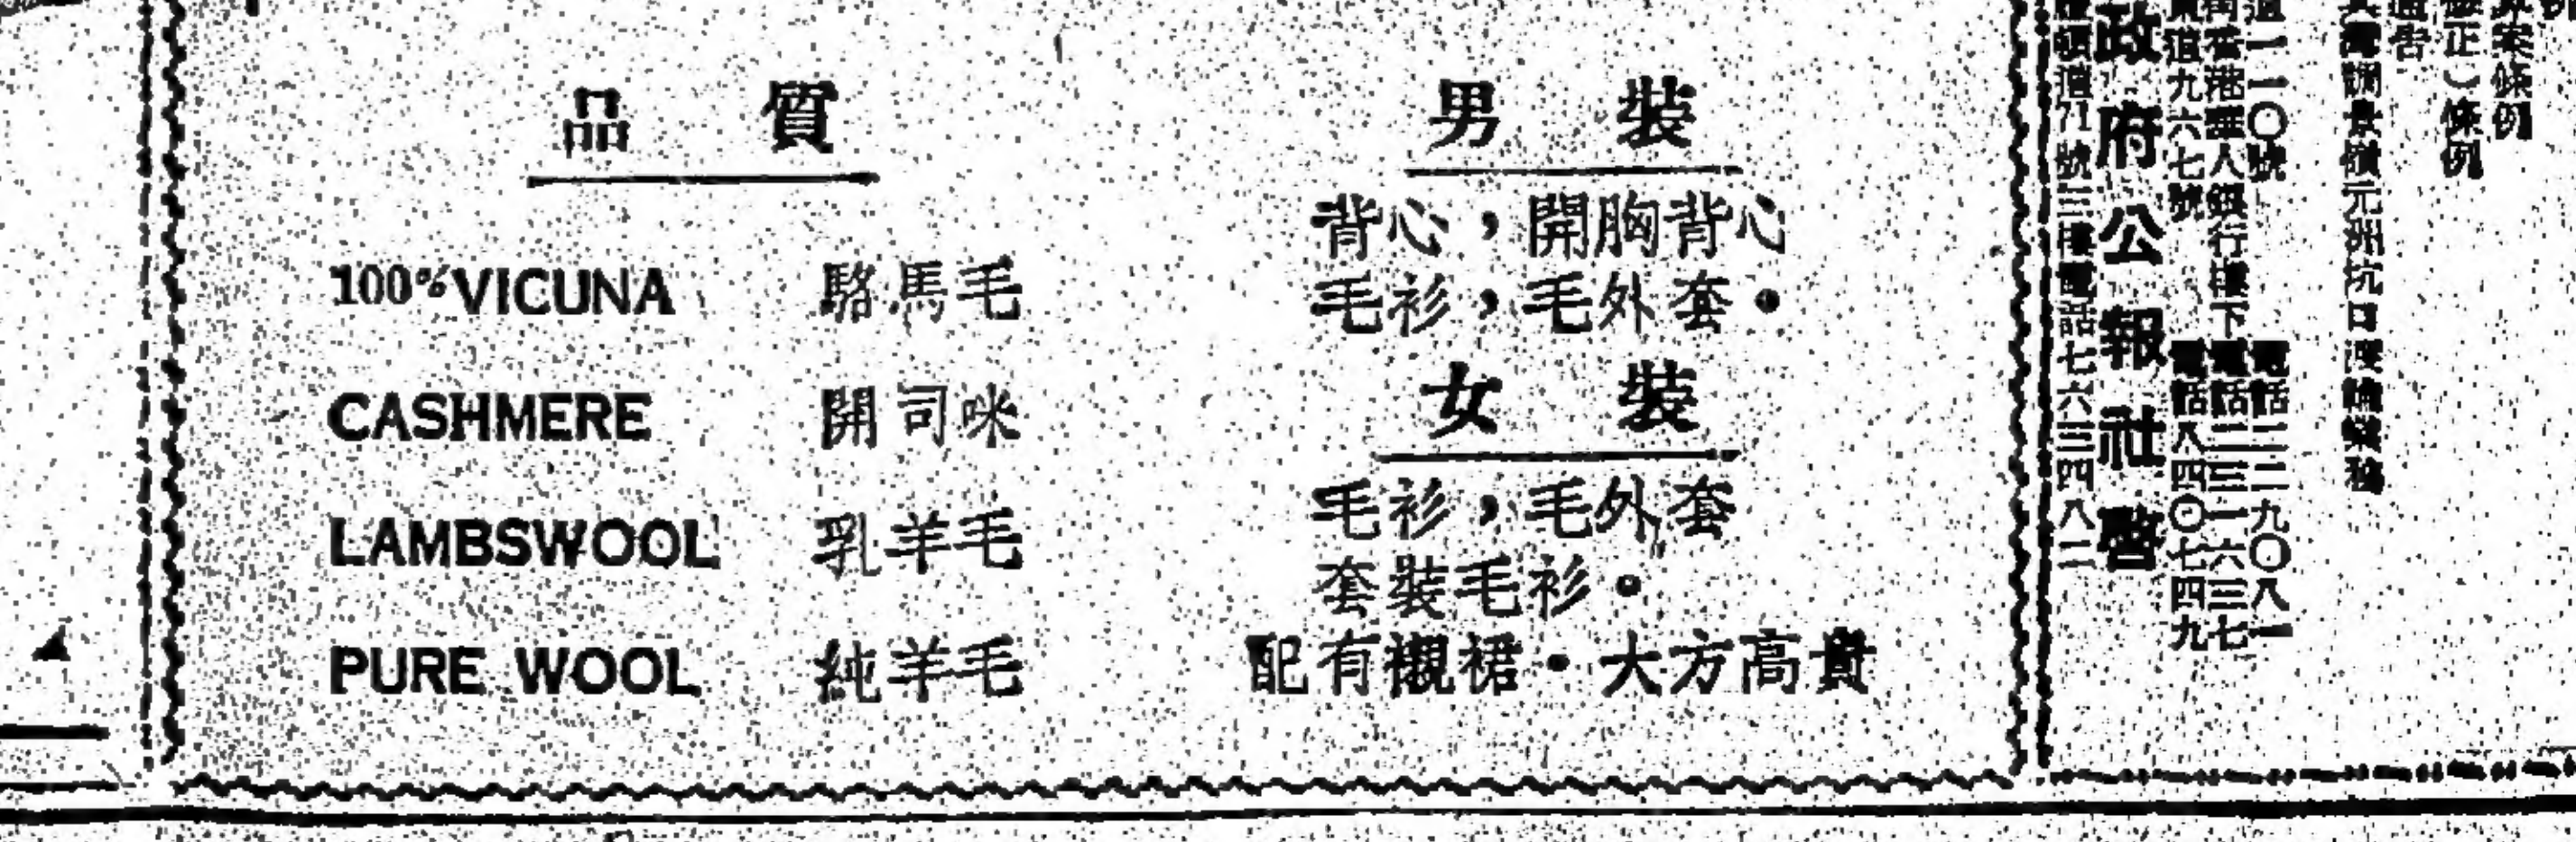 品質
100%VICUNA 駱馬毛
CASHMERE 開司咪
LAMBSWOOL 乳羊毛
PURE WOOL 純羊毛
男裝
背心，開胸背心
毛衫，毛外套。
女裝
毛衫，毛外套
套裝毛衫。
配有襯裙。大方高貴
條例
修正）條例
調景嶺元洲坑口
一一〇號 電話二二九〇八一
人銀行樓下 電話二三一六三七
道九六七號 電話八四〇七四九
政府公報社啓
道71號三樓電話七六三四八二